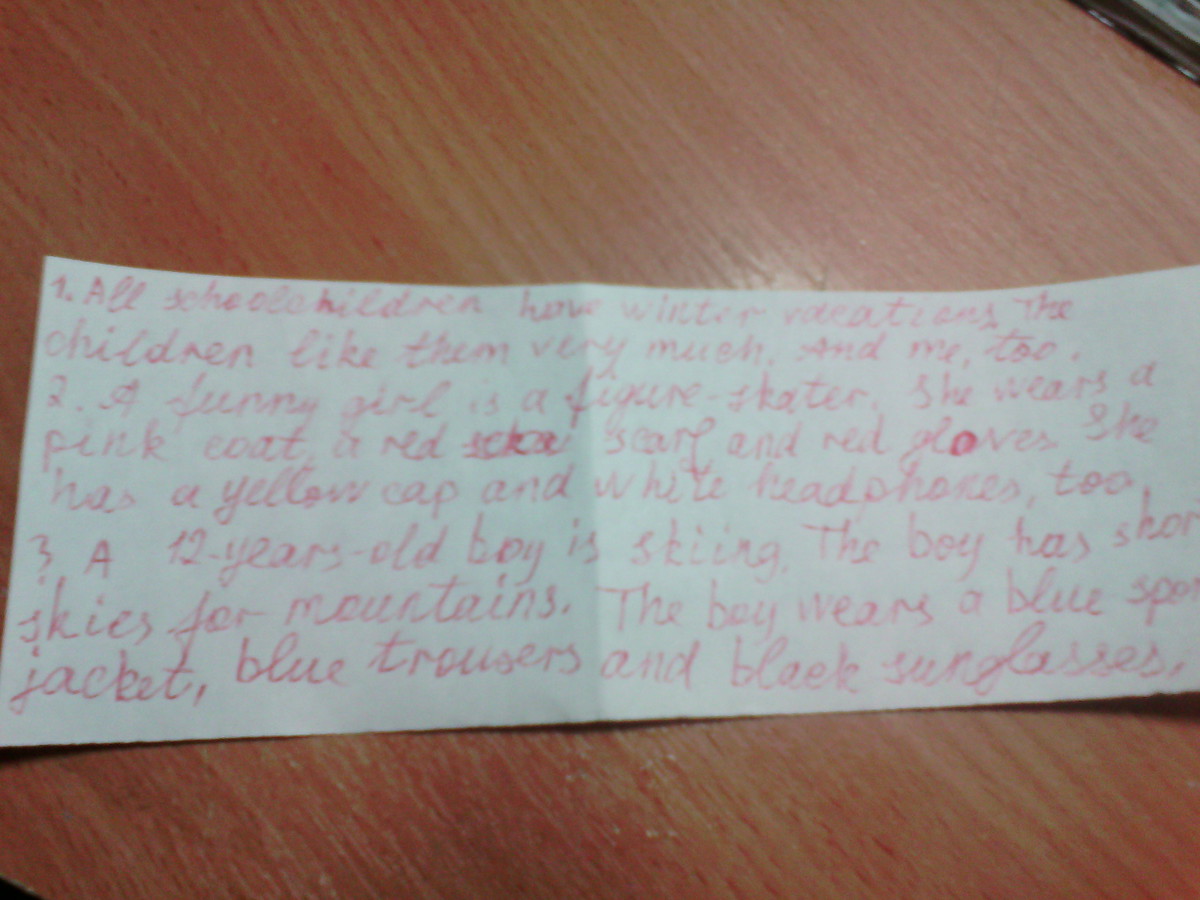 1. All schoolchildren have winter vacations. The
children like them very much. And me, too.
2. A funny girl is a figure-skater. She wears a
pink coat, a red scarf and red gloves. She
has a yellow cap and white headphones, too.
3. A 12-years-old boy is skiing. The boy has shor
skies for mountains. The boy wears a blue spor
jacket, blue trousers and black sunglasses.